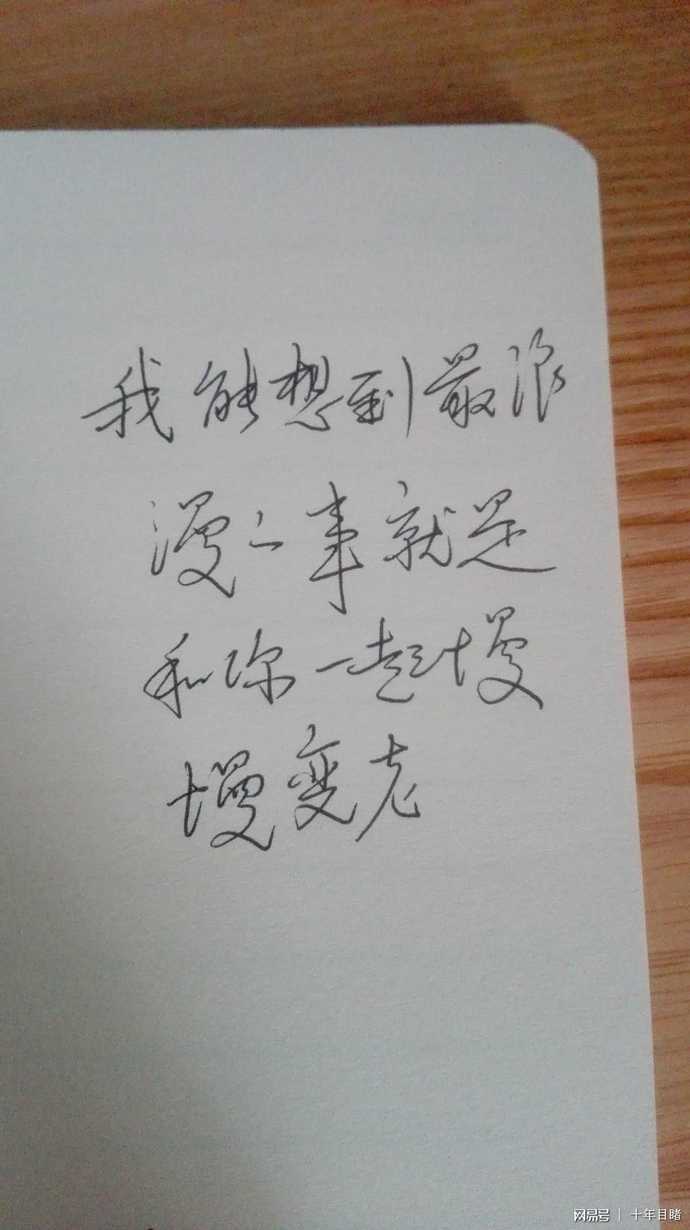 我能想到最浪
漫之事就是
和你一起慢
慢变老
网易号 | 十年目睹